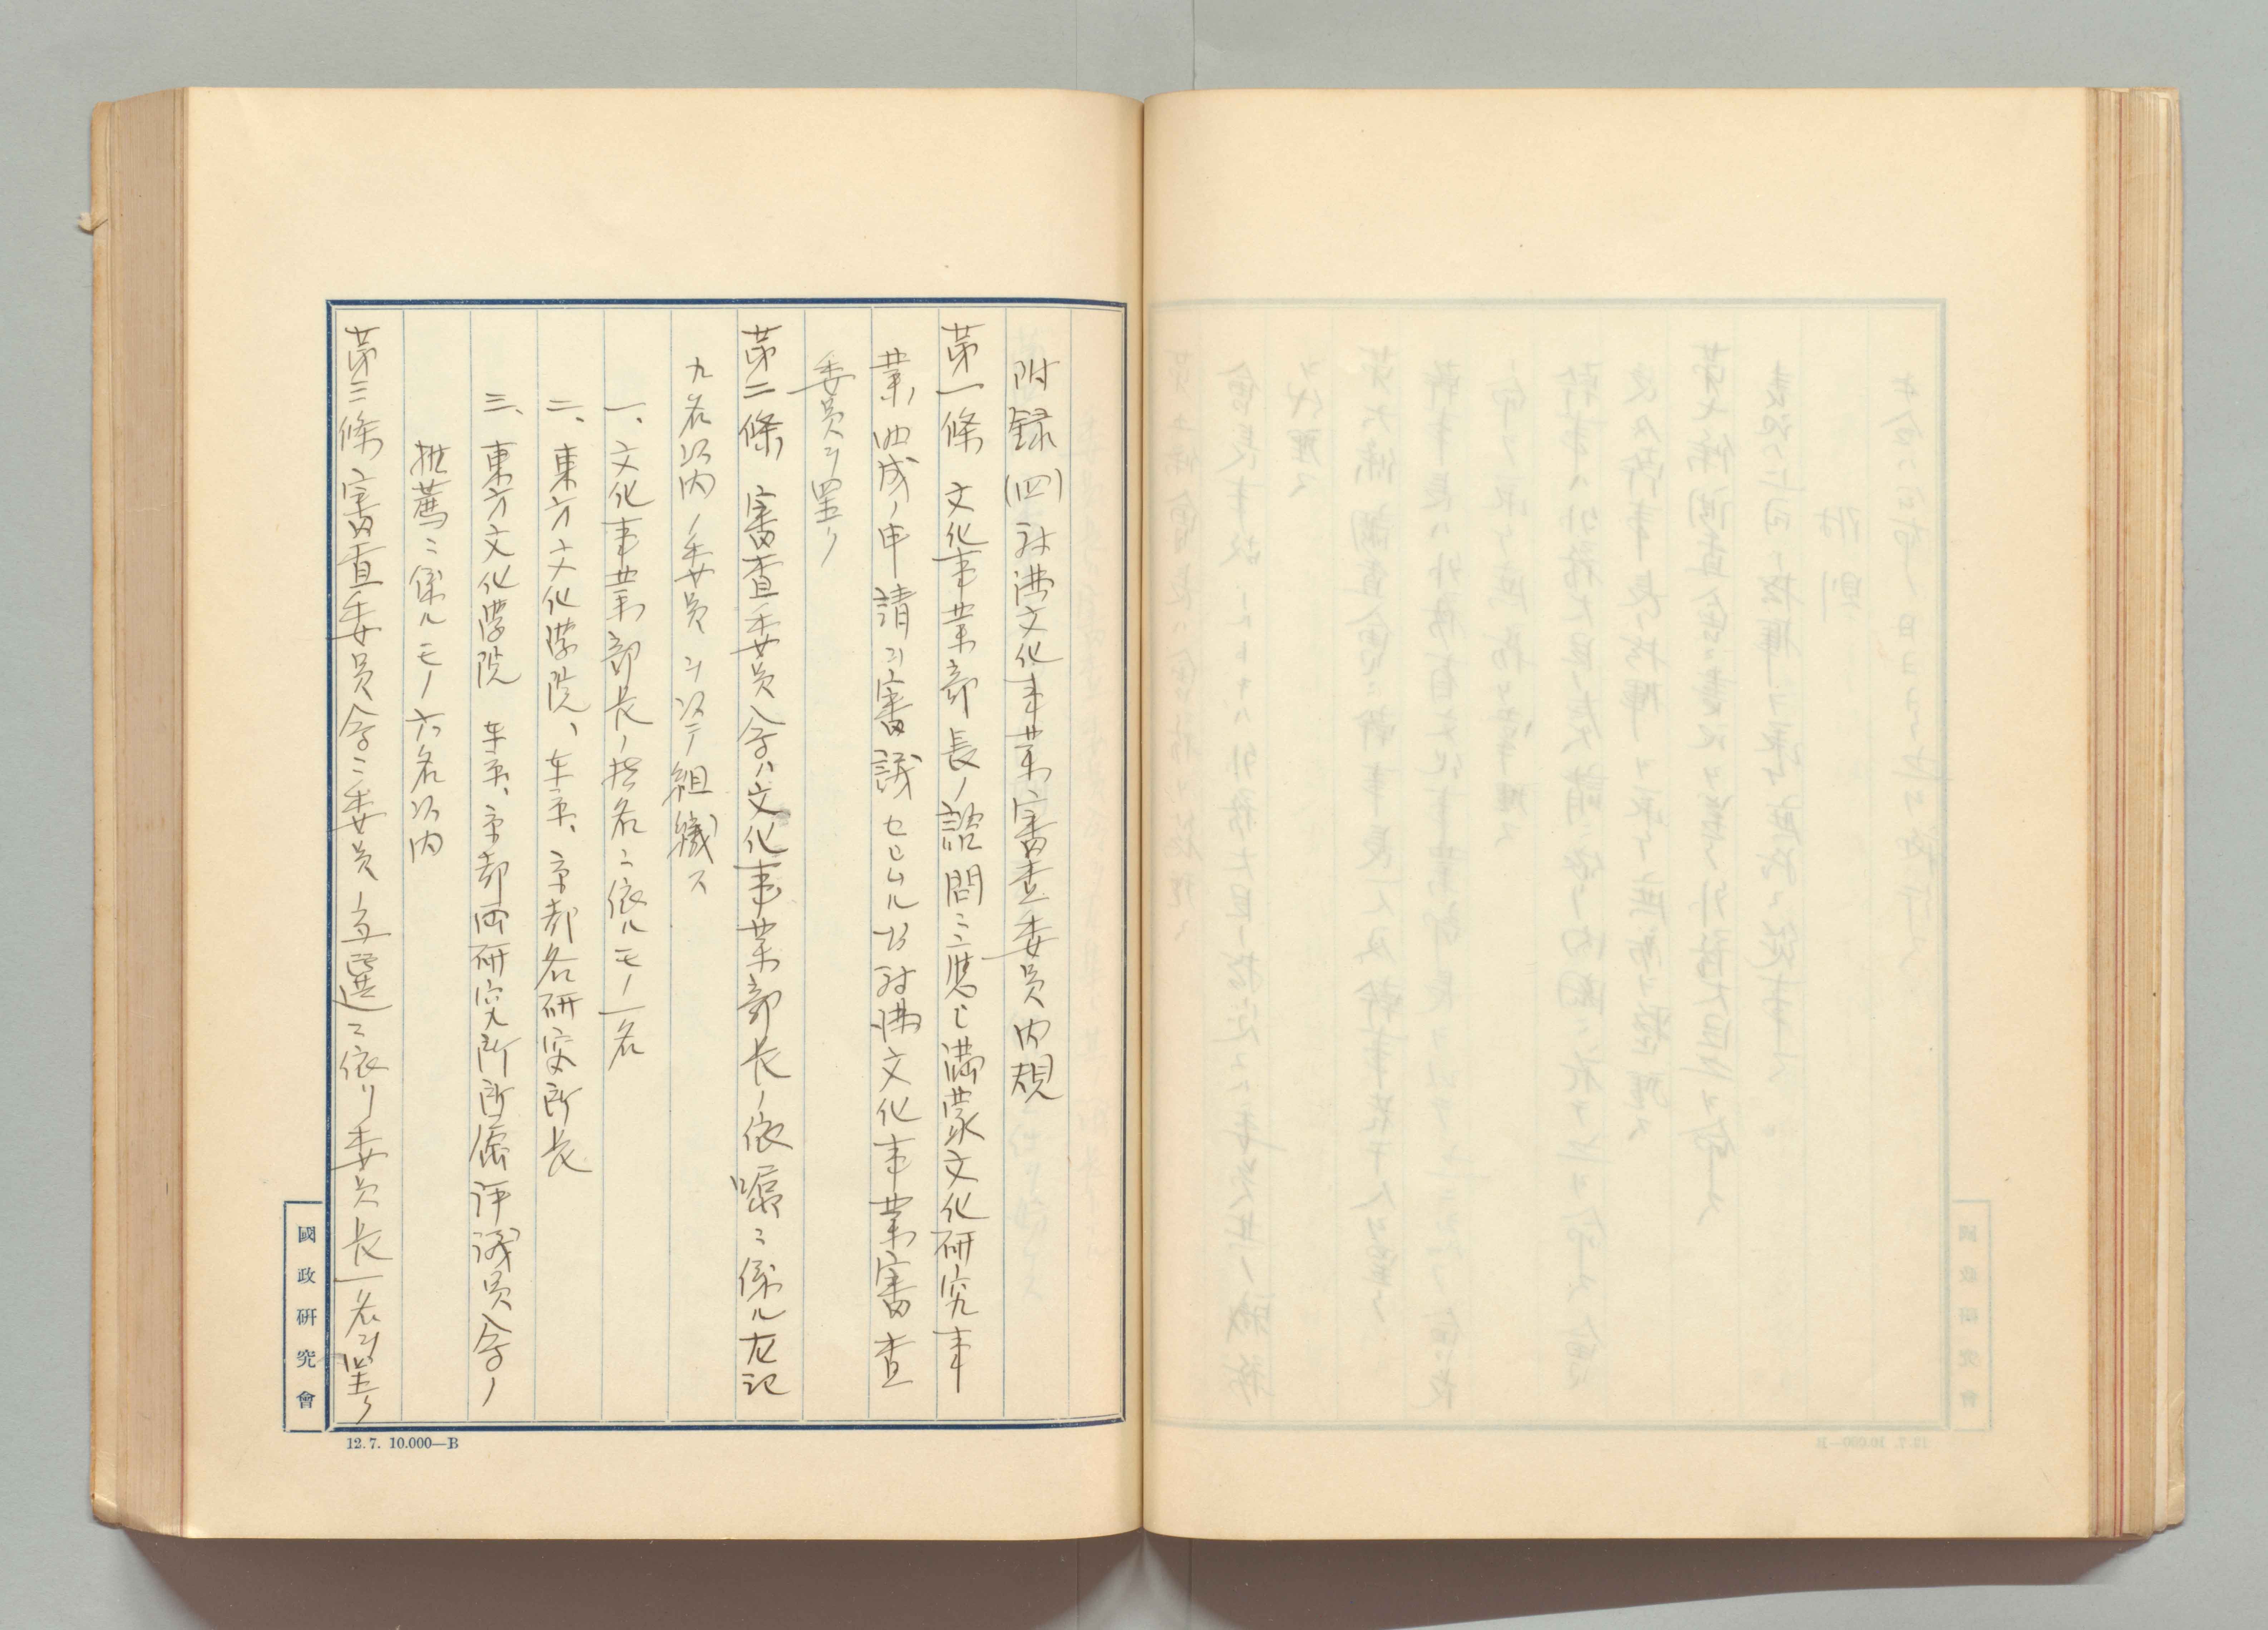 附録(四)対満文化事業審査委員内規
第一條 文化事業部長ノ諮問ニ應シ満蒙文化研究事
業助成ノ申請ヲ審議セシムル為対満文化事業審査
委員ヲ置ク
第二條 審査委員会ハ文化事業部長ノ依嘱ニ係ル左記
九名以内ノ委員ヲ以テ組織ス
一、文化事業部長ノ指名ニ依ルモノ一名
二、東方文化学院、東京、京都各研究所長
三、東方文化学院 東京、京都両研究所所属評議員会ノ
推薦ニ係ルモノ六名以内
第三條 審査委員会ニ委員ノ互選ニ依リ委員長一名ヲ置ク
國政研究會
12.7. 10.000—B